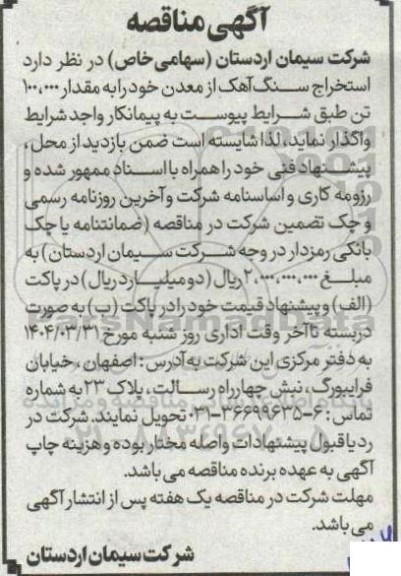 آگهی مناقصه
شرکت سیمان اردستان (سهامی خاص) در نظر دارد
استخراج سنگ آهک از معدن خود را به مقدار ۱۰۰,۰۰۰
تن طبق شرایط پیوست به پیمانکار واجد شرایط
واگذار نماید، لذا شایسته است ضمن بازدید از محل،
پیشنهاد فنی خود را همراه با اسناد ممهور شده و
رزومه کاری و اساسنامه شرکت و آخرین روزنامه رسمی
و چک تضمین شرکت در مناقصه (ضمانتنامه یا چک
بانکی رمزدار در وجه شرکت سیمان اردستان) به
مبلغ ۲,۰۰۰,۰۰۰,۰۰۰ ریال (دو میلیارد ریال) در پاکت
(الف) و پیشنهاد قیمت خود را در پاکت (ب) به صورت
دربسته تا آخر وقت اداری روز شنبه مورخ ۱۴۰۴/۰۳/۳۱
به دفتر مرکزی این شرکت به آدرس: اصفهان، خیابان
فرایبورگ، نبش چهارراه رسالت، پلاک ۲۳ به شماره
تماس: ۶-۳۶۶۹۹۶۳۵-۰۳۱ تحویل نمایند. شرکت در
رد یا قبول پیشنهادات واصله مختار بوده و هزینه چاپ
آگهی به عهده برنده مناقصه می باشد.
مهلت شرکت در مناقصه یک هفته پس از انتشار آگهی
می باشد.
شرکت سیمان اردستان